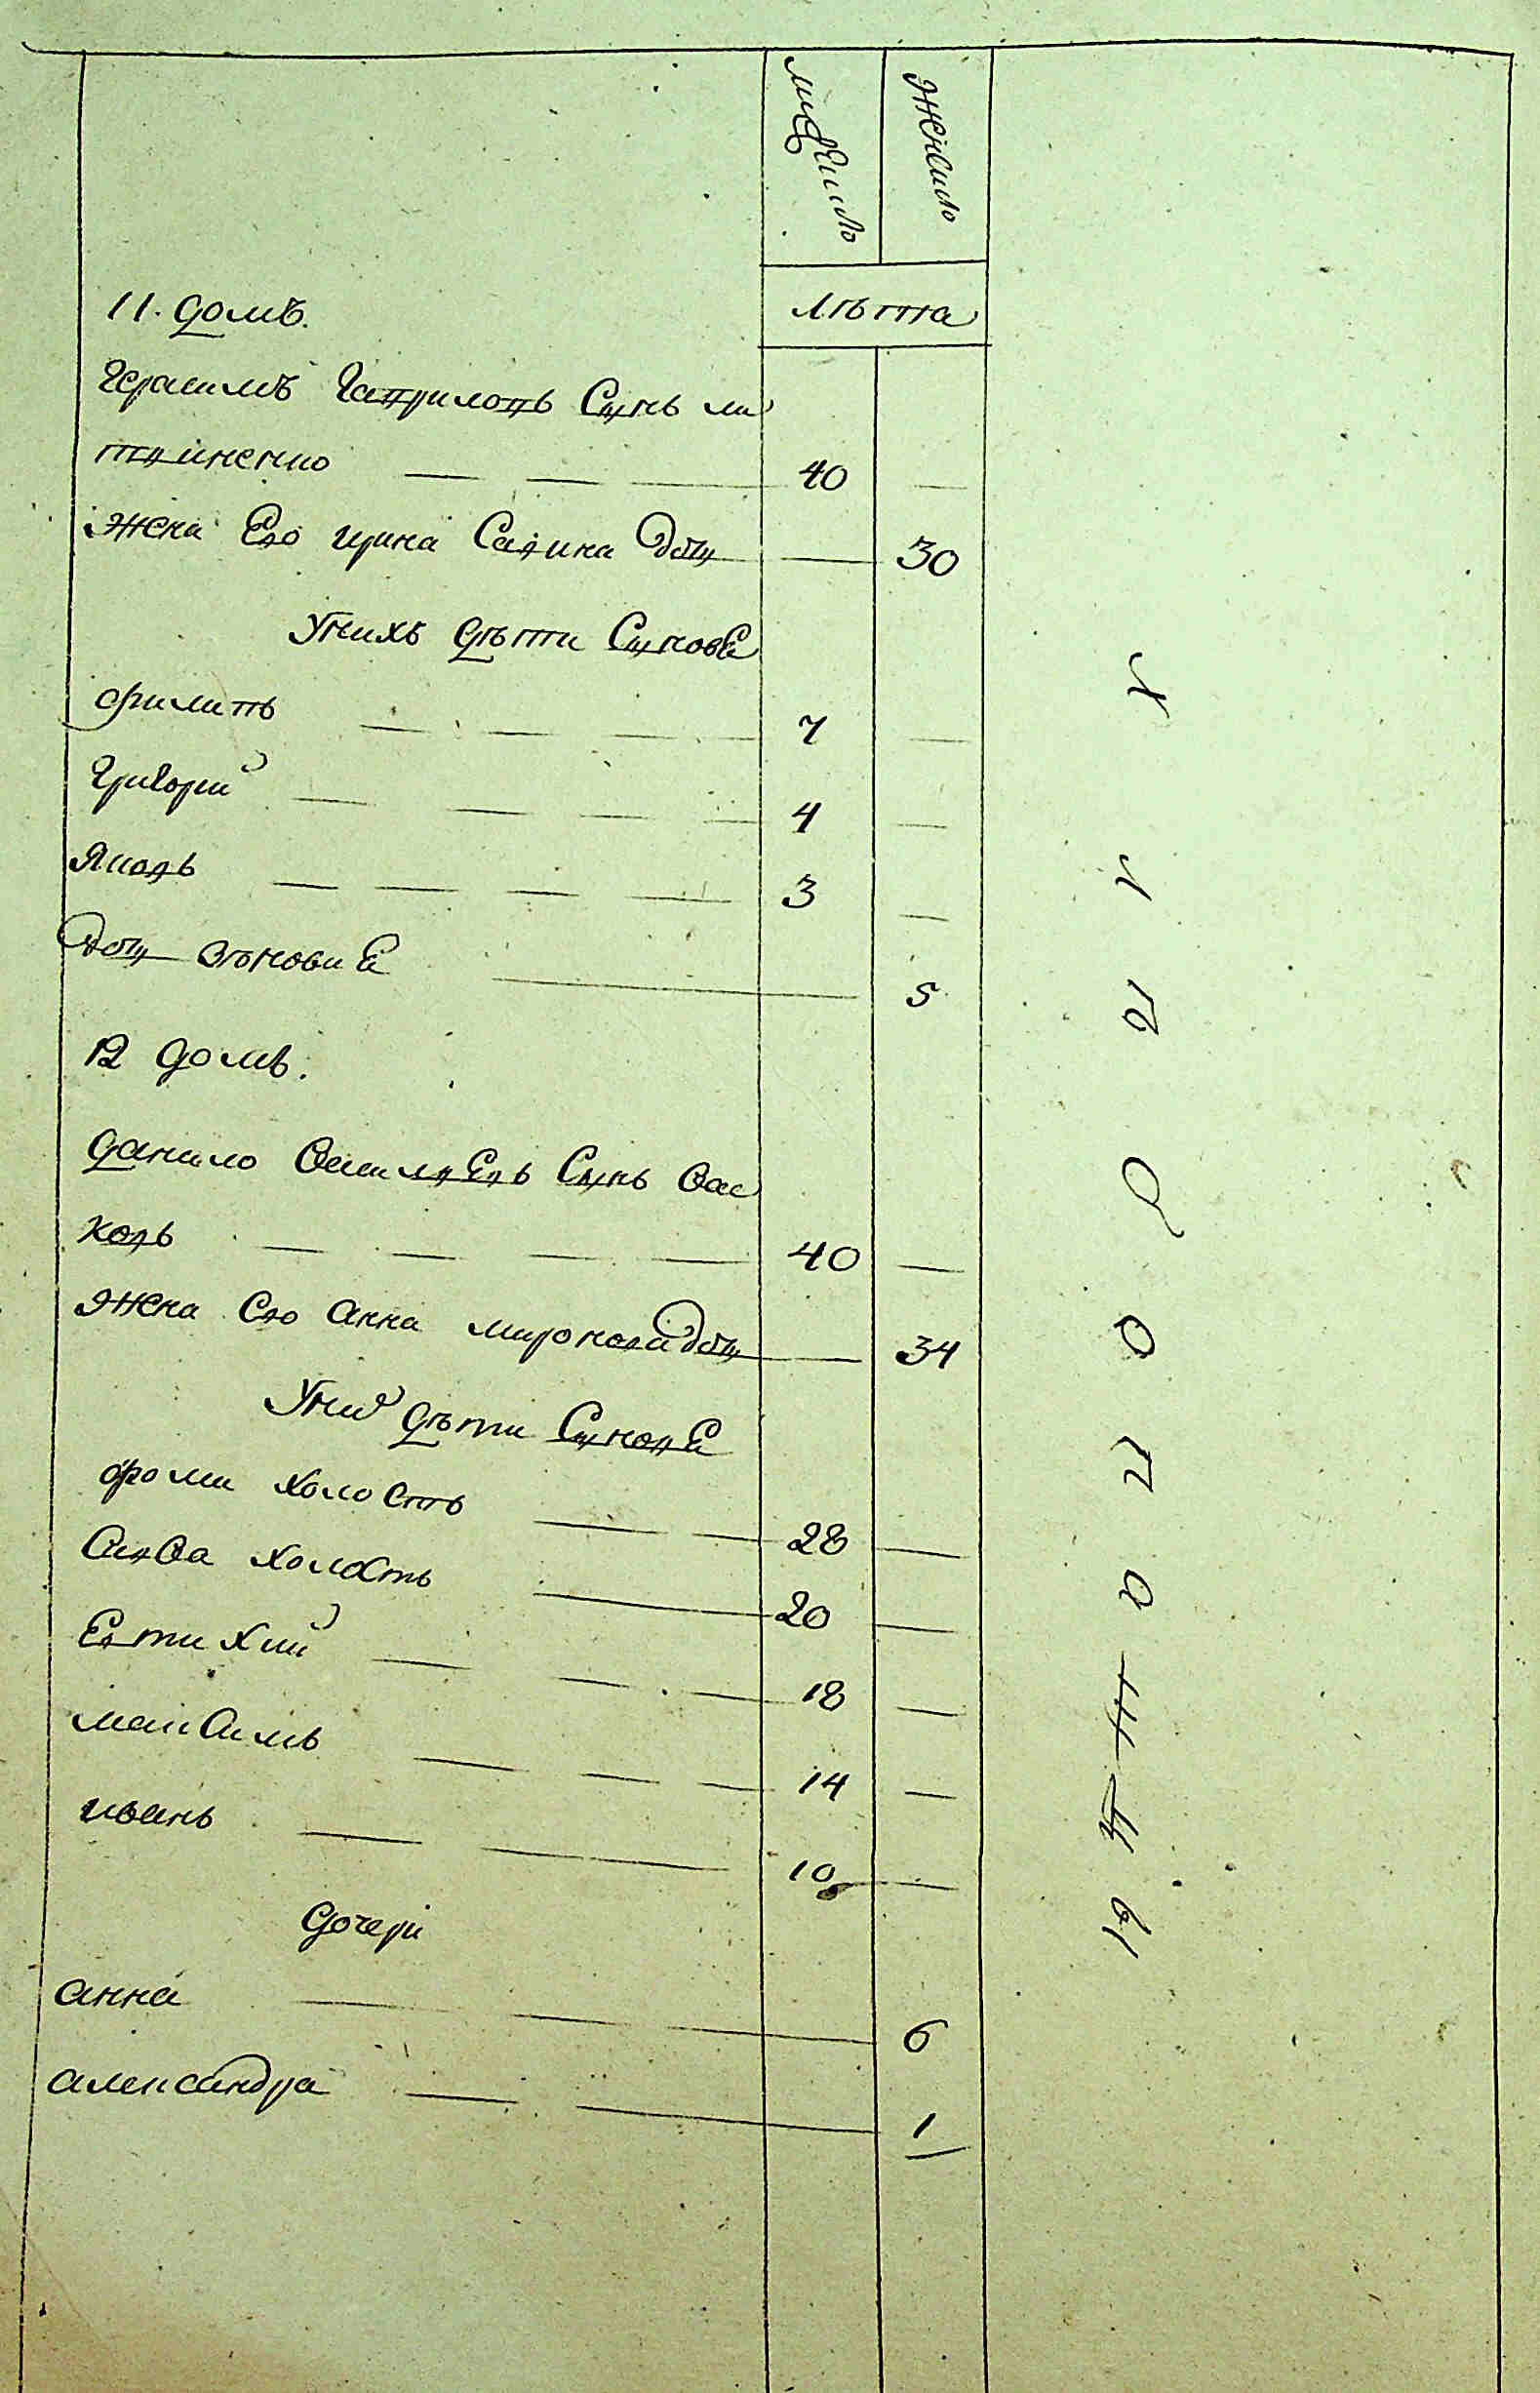 мужеского
женского
лѣта
11. домъ.
Герасимъ Гавриловъ Сынъ ли
твиненко 40
жена Его ирина Савина дочь 30
Унихъ дѣти Сыновѣ
филипъ 7
Григорий 4
Яковъ 3
дочь зѣновиѣ 5
12 домъ.
данило Василѣевъ Сынъ Вас
ковъ 40
жена Его анна миронова дочь 34
Уних дѣти Сыновѣ
фома холостъ 28
Савва холостъ 20
Евтихий 18
максимъ 14
иванъ 10
дочери
анна 6
александра 1